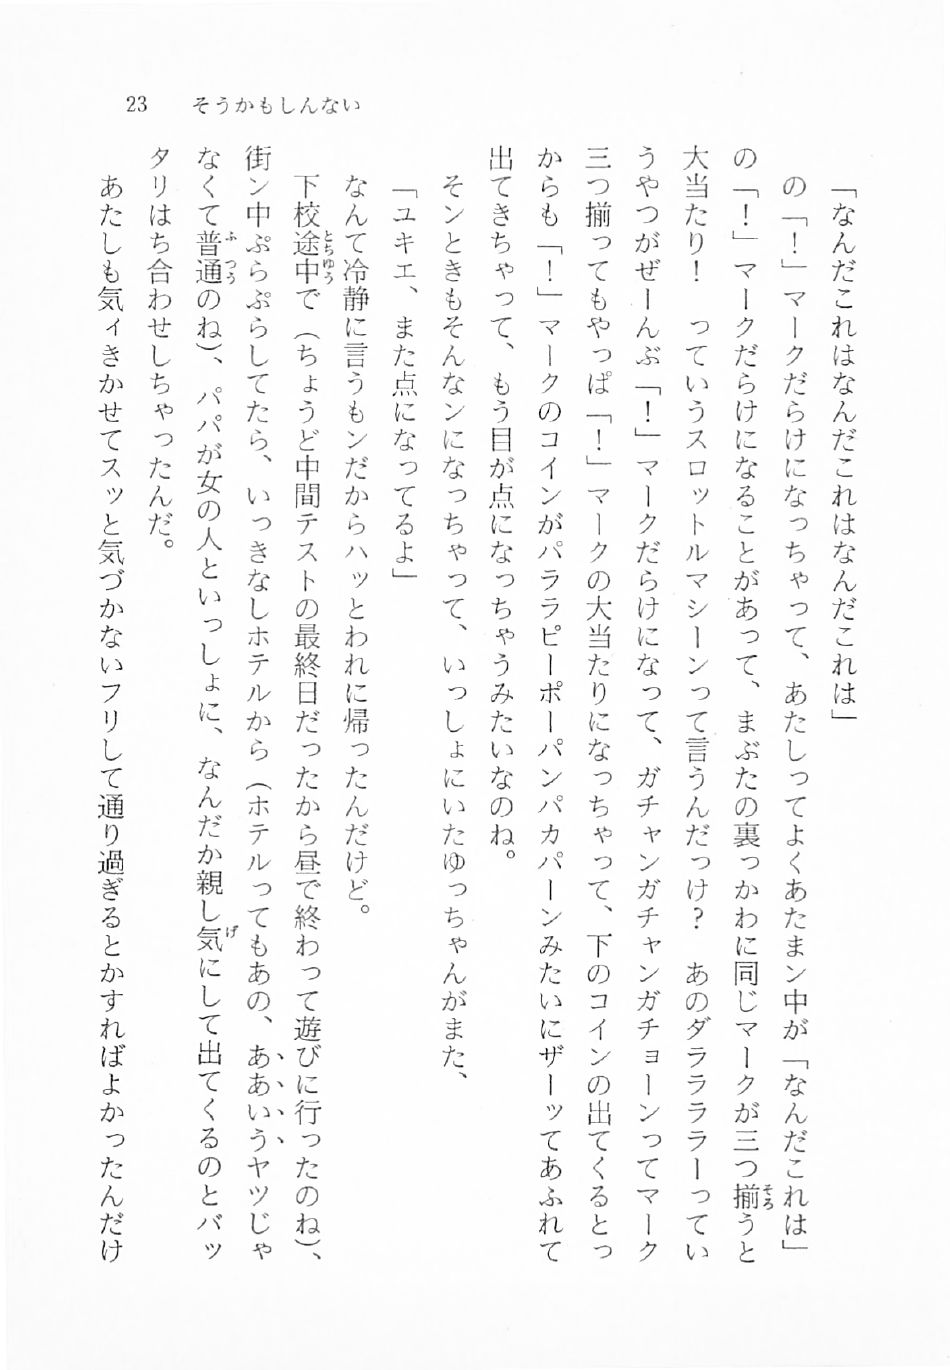 23　そうかもしんない
「なんだこれはなんだこれはなんだこれは」
の「！」マークだらけになっちゃって、あたしってよくあたまン中が「なんだこれは」
の「！」マークだらけになることがあって、まぶたの裏っかわに同じマークが三つ揃うと
大当たり！　っていうスロットルマシーンって言うんだっけ？　あのダララララーってい
うやつがぜーんぶ「！」マークだらけになって、ガチャンガチャンガチョーンってマーク
三つ揃ってもやっぱ「！」マークの大当たりになっちゃって、下のコインの出てくるとっ
からも「！」マークのコインがパララピーポーパンパカパーンみたいにザーッてあふれて
出てきちゃって、もう目が点になっちゃうみたいなのね。
そンときもそんなンになっちゃって、いっしょにいたゆっちゃんがまた、
「ユキエ、また点になってるよ」
なんて冷静に言うもンだからハッとわれに帰ったんだけど。
下校途中で（ちょうど中間テストの最終日だったから昼で終わって遊びに行ったのね）、
街ン中ぷらぷらしてたら、いっきなしホテルから（ホテルってもあの、ああいうヤツじゃ
なくて普通のね）、パパが女の人といっしょに、なんだか親し気にして出てくるのとバッ
タリはち合わせしちゃったんだ。
あたしも気ィきかせてスッと気づかないフリして通り過ぎるとかすればよかったんだけ